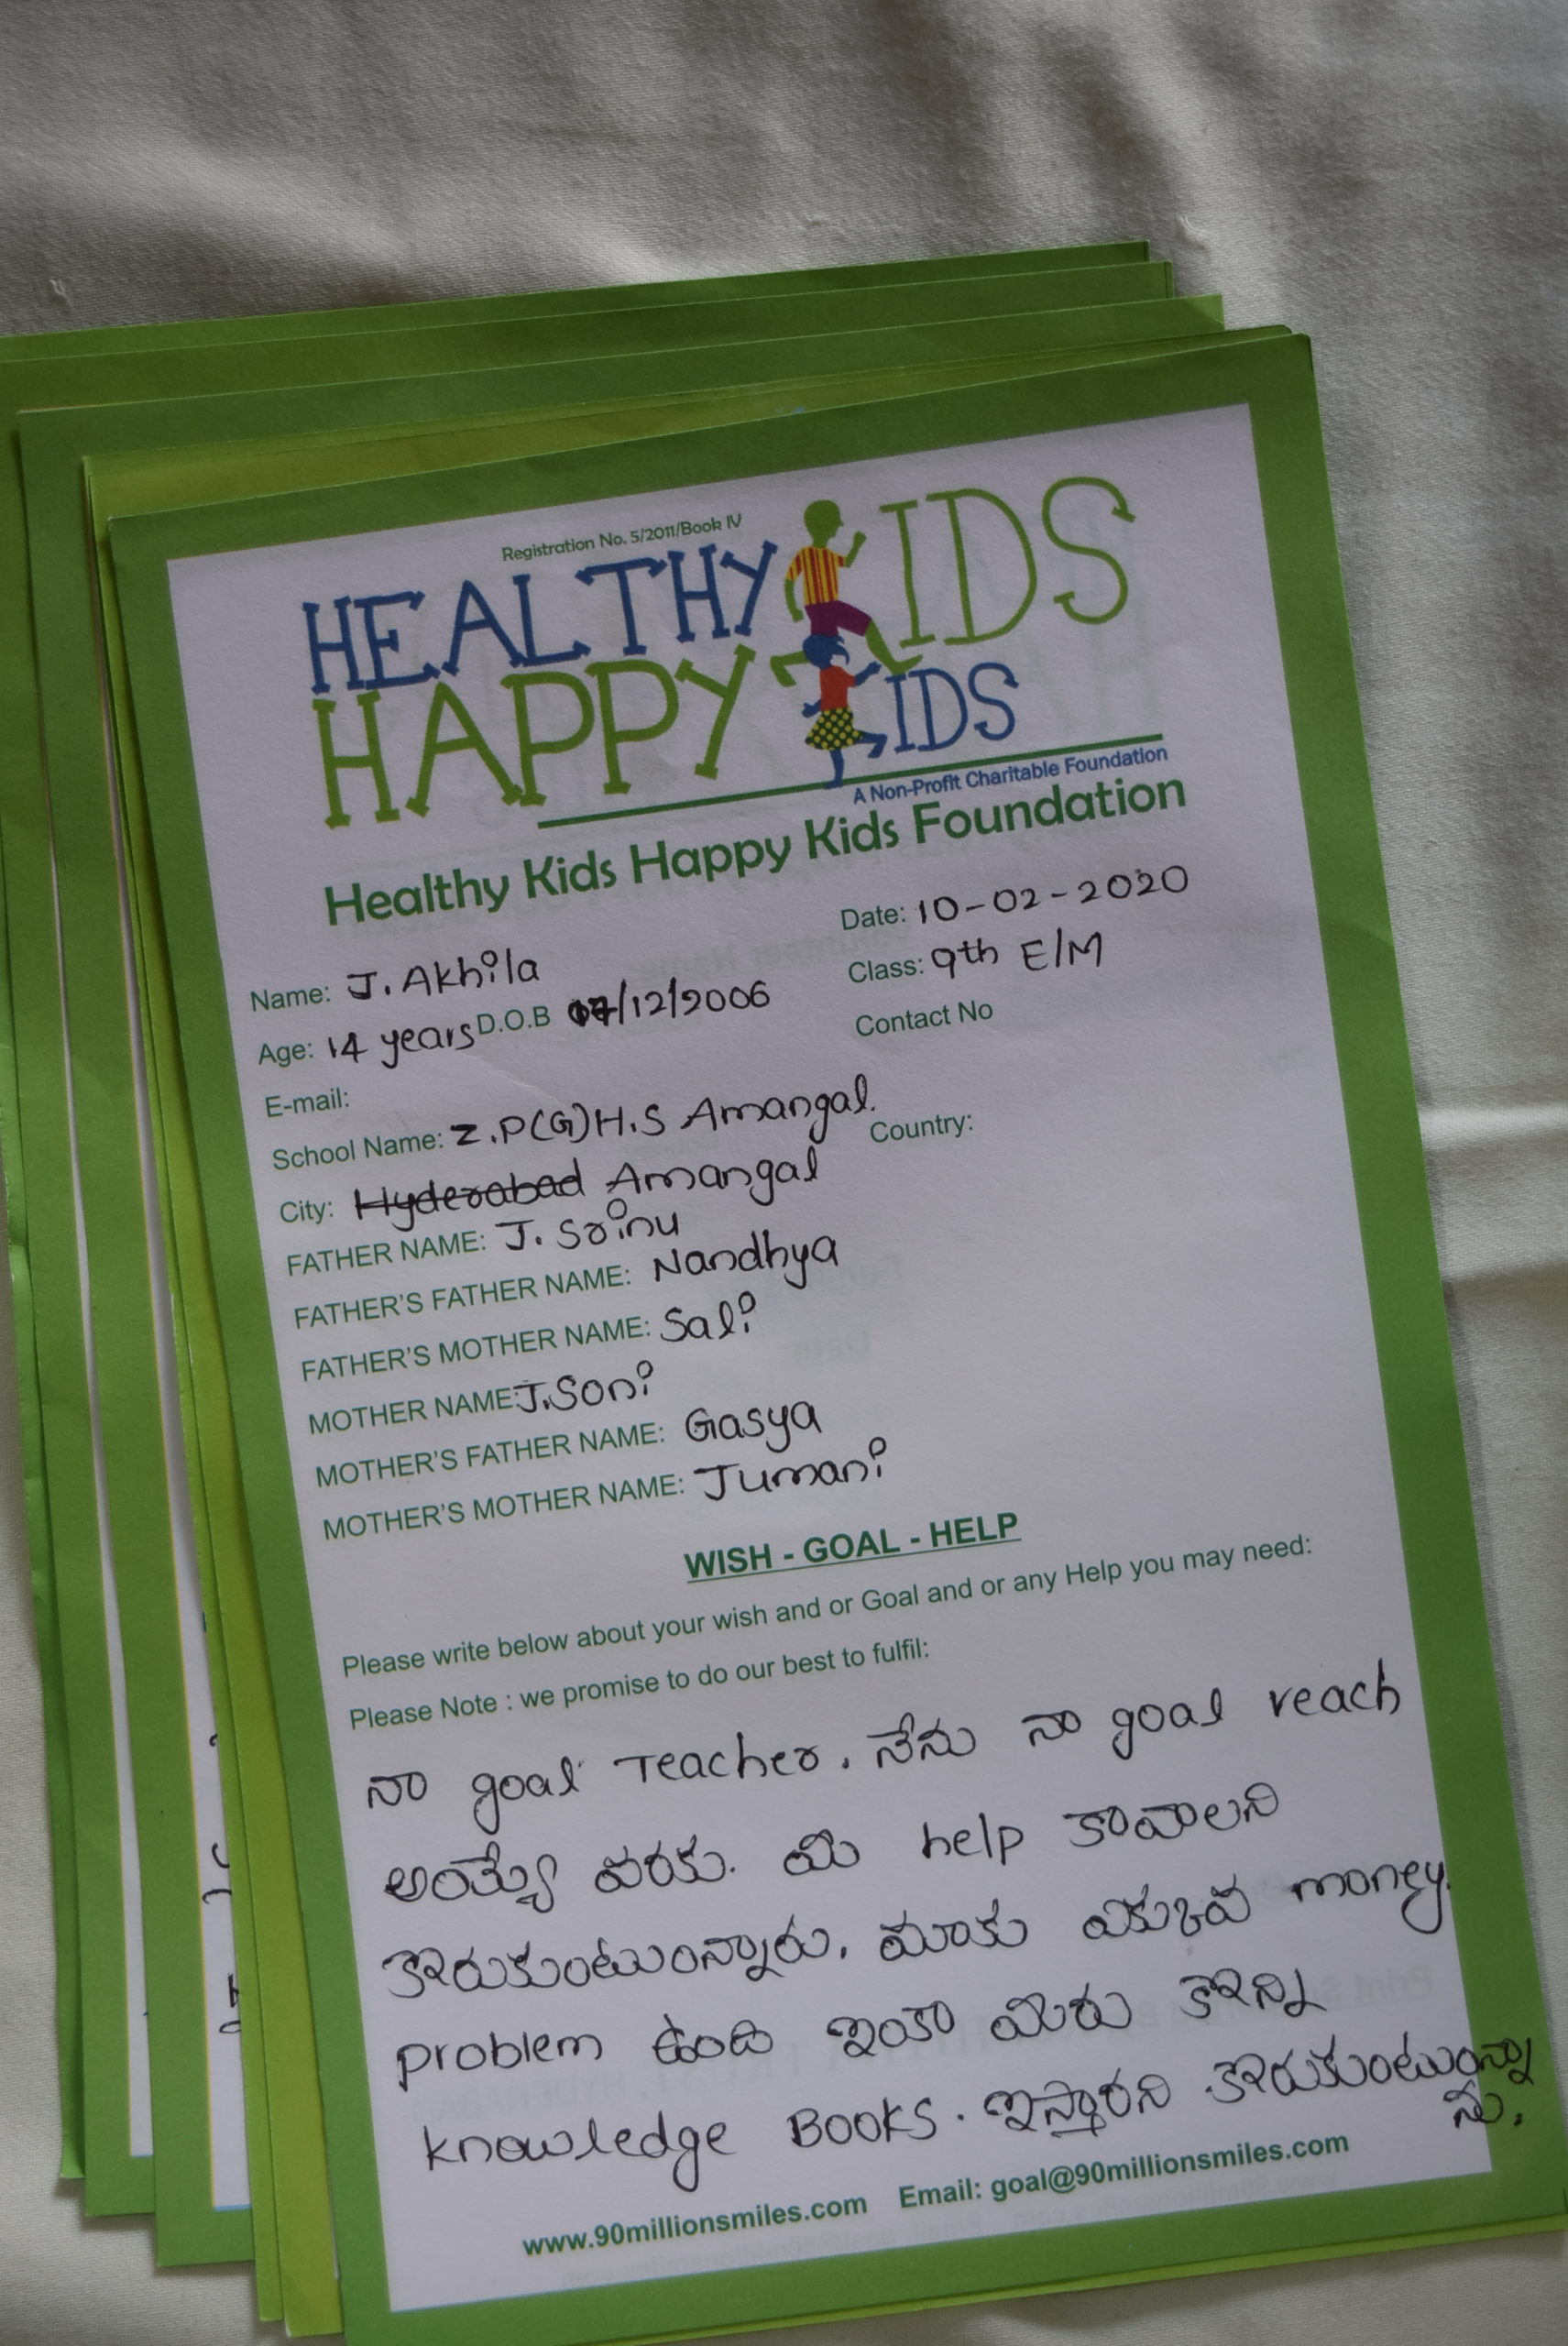 Registration No. 5/2011/Book IV
HEALTHY KIDS
HAPPY KIDS
A Non-Profit Charitable Foundation
Healthy Kids Happy Kids Foundation
Date: 10-02-2020
Name: J. Akhila
Class: 9th E/M
Age: 14 years D.O.B /12/2006
Contact No
E-mail:
School Name: Z.P(G)H.S Amangal.
Country:
City: Hyderabad Amangal
FATHER NAME: J. Srinu
FATHER'S FATHER NAME: Nandhya
FATHER'S MOTHER NAME: Sali
MOTHER NAME: J.Soni
MOTHER'S FATHER NAME: Gasya
MOTHER'S MOTHER NAME: Jumani
WISH - GOAL - HELP
Please write below about your wish and or Goal and or any Help you may need:
Please Note : we promise to do our best to fulfil:
నా goal Teacher. నేను నా goal reach
అయ్యే వరకు. మి help కావాలని
కోరుకుంటుంన్నారు. మాకు ఎక్కువ money.
problem ఉంది ఇంకా మీరు కొన్ని
knowledge Books. ఇస్తారని కోరుకుంటుంన్నా
ను.
www.90millionsmiles.com Email: goal@90millionsmiles.com